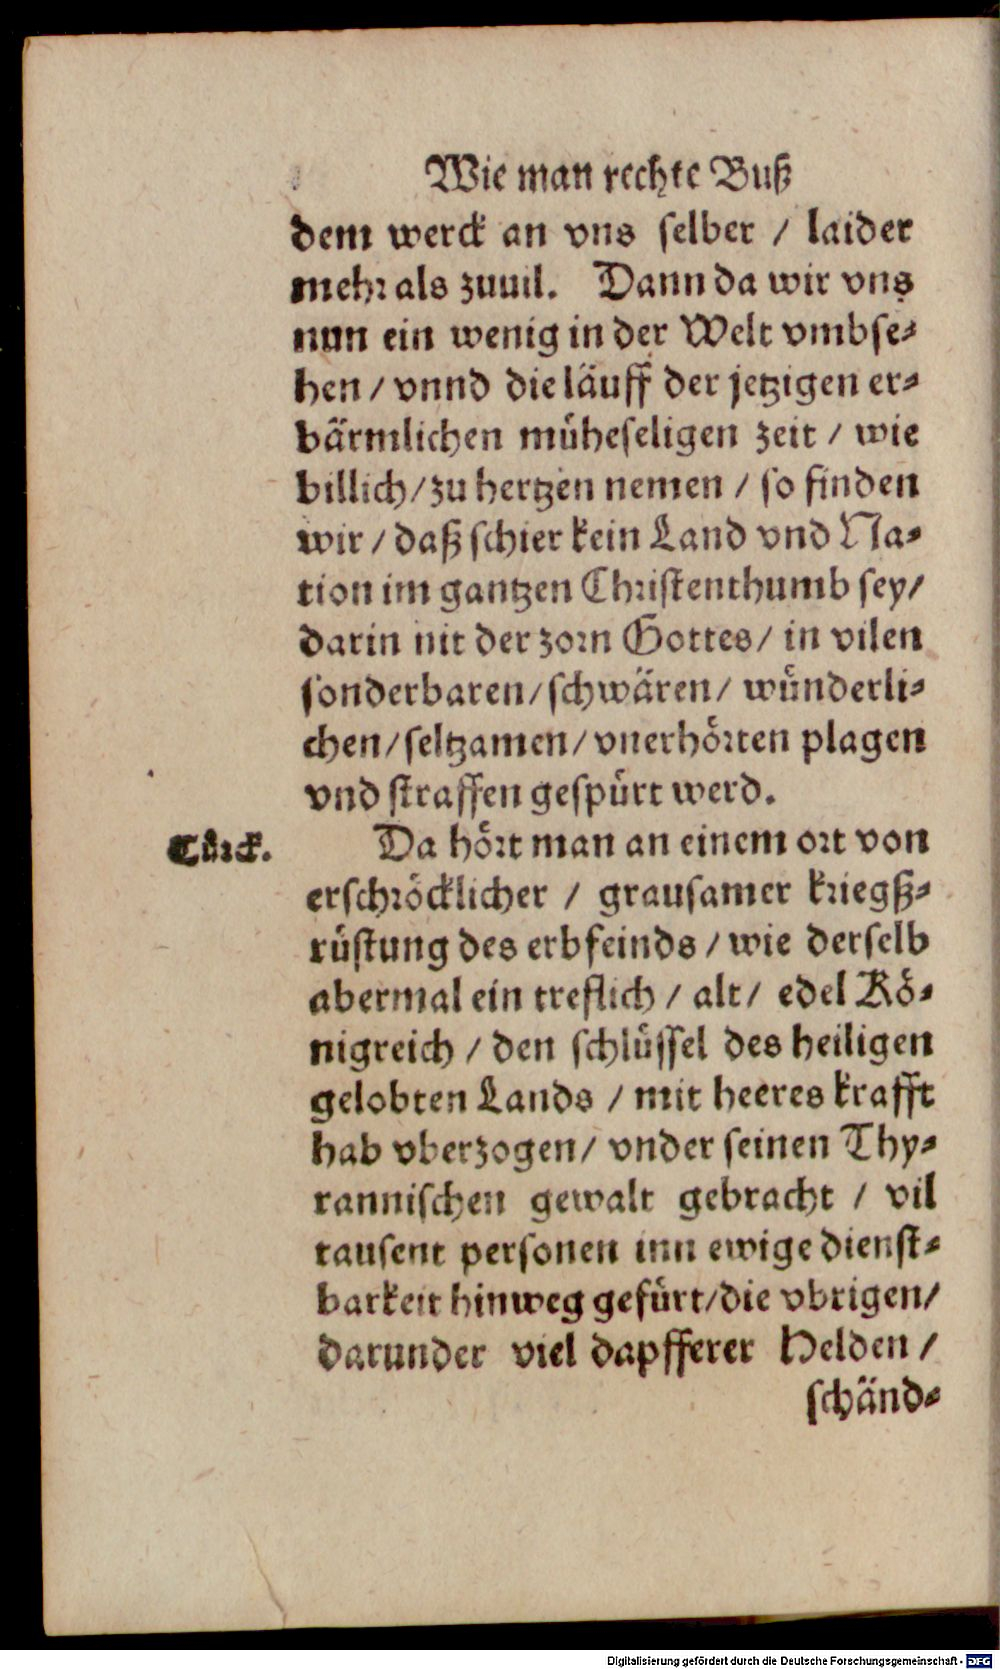 Wie man rechte Buß
dem werck an vns selber / laider
mehr als zuuil. Dann da wir vns
nun ein wenig in der Welt vmbse-
hen / vnnd die läuff der jetzigen er-
bärmlichen müheseligen zeit / wie
billich / zu hertzen nemen / so finden
wir / daß schier kein Land vnd Na-
tion im gantzen Christenthumb sey /
darin nit der zorn Gottes / in vilen
sonderbaren / schwären / wůnderli-
chen / seltzamen / vnerhörten plagen
vnd straffen gespürt werd.
Türck.
Da hört man an einem ort von
erschröcklicher / grausamer kriegß-
rüstung des erbfeinds / wie derselb
abermal ein treflich / alt / edel Kö-
nigreich / den schlüssel des heiligen
gelobten Lands / mit heeres krafft
hab vberzogen / vnder seinen Thy-
rannischen gewalt gebracht / vil
tausent personen inn ewige dienst-
barkeit hinweg gefürt / die vbrigen /
darunder viel dapfferer Helden /
schänd-
Digitalisierung gefördert durch die Deutsche Forschungsgemeinschaft - DFG